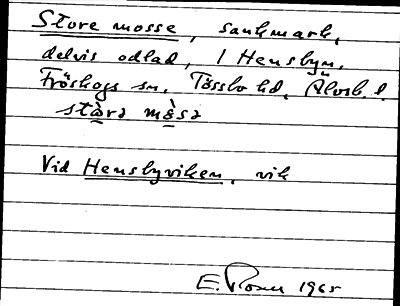 Store mosse, sankmark,
delvis odlad, i Hensbyn,
Fröskogs sn, Tössbo hd, Älvsb. l.
stòra mòsa
Vid Hensbyviken, vik
E. Rosell 1965